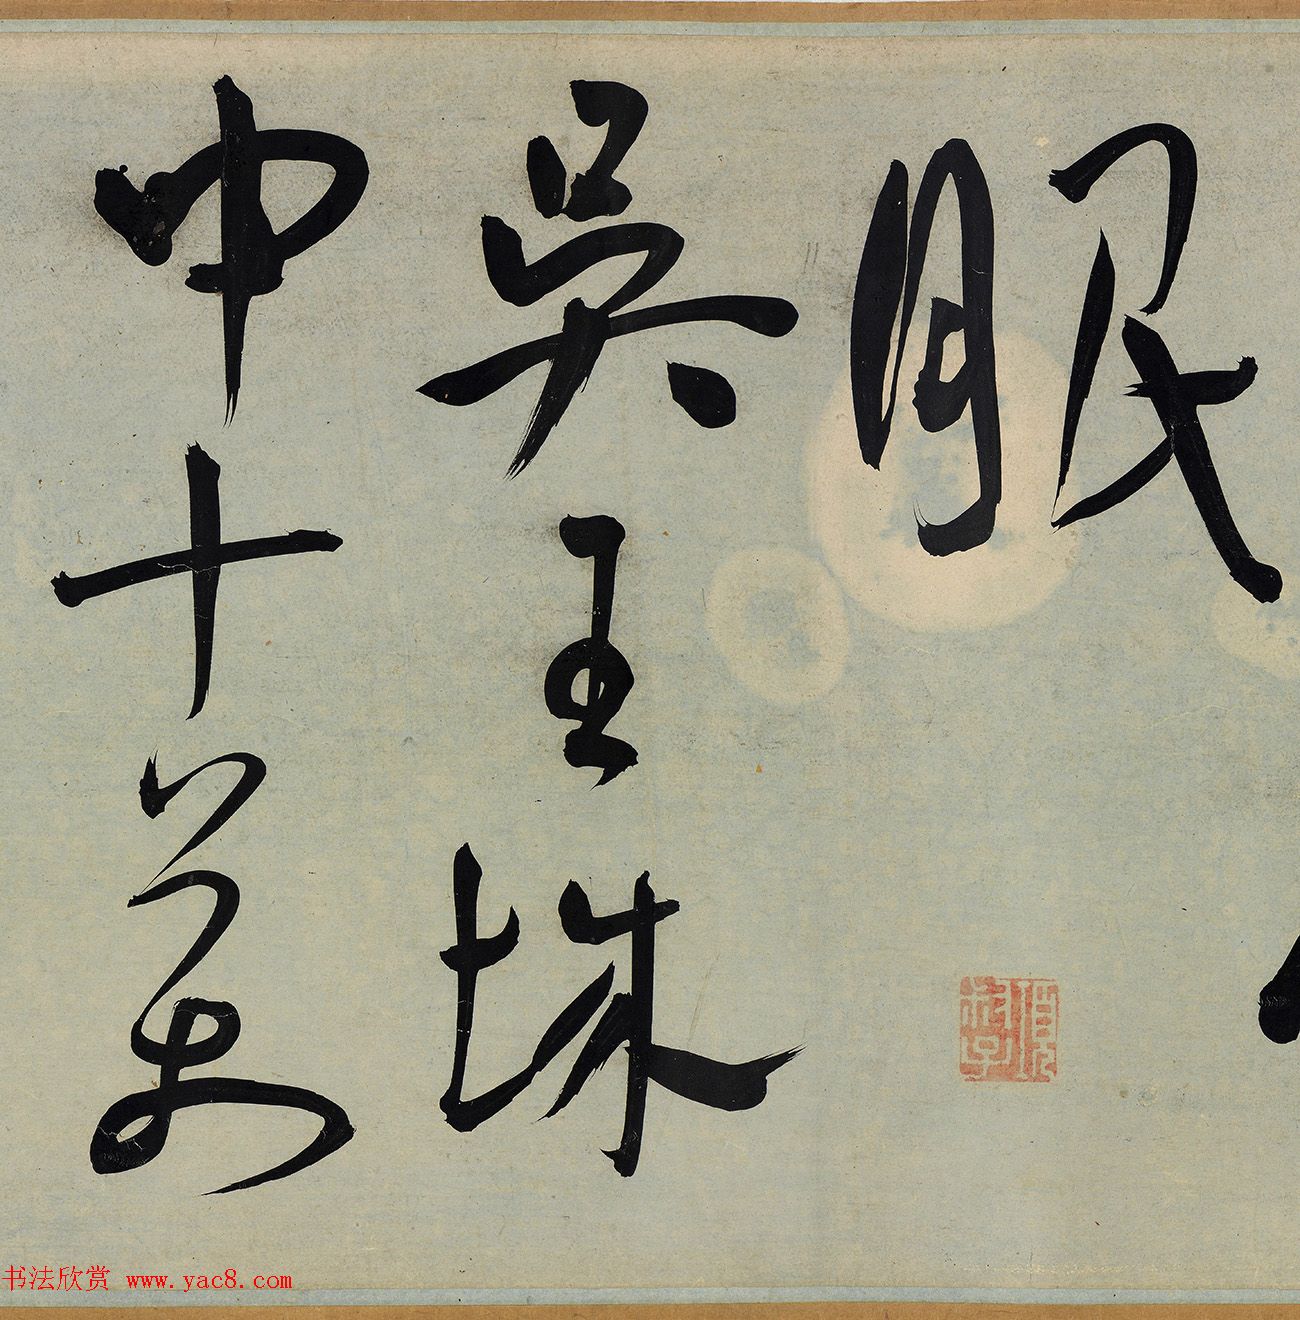 眼
吳王
中十萬
书法欣赏 www.yac8.com